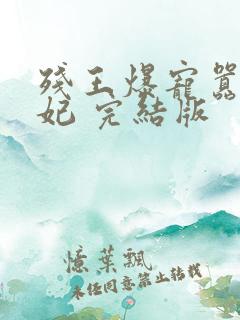 残王爆寵囂
妃 完結版
憶葉飄
未经同意禁止转载